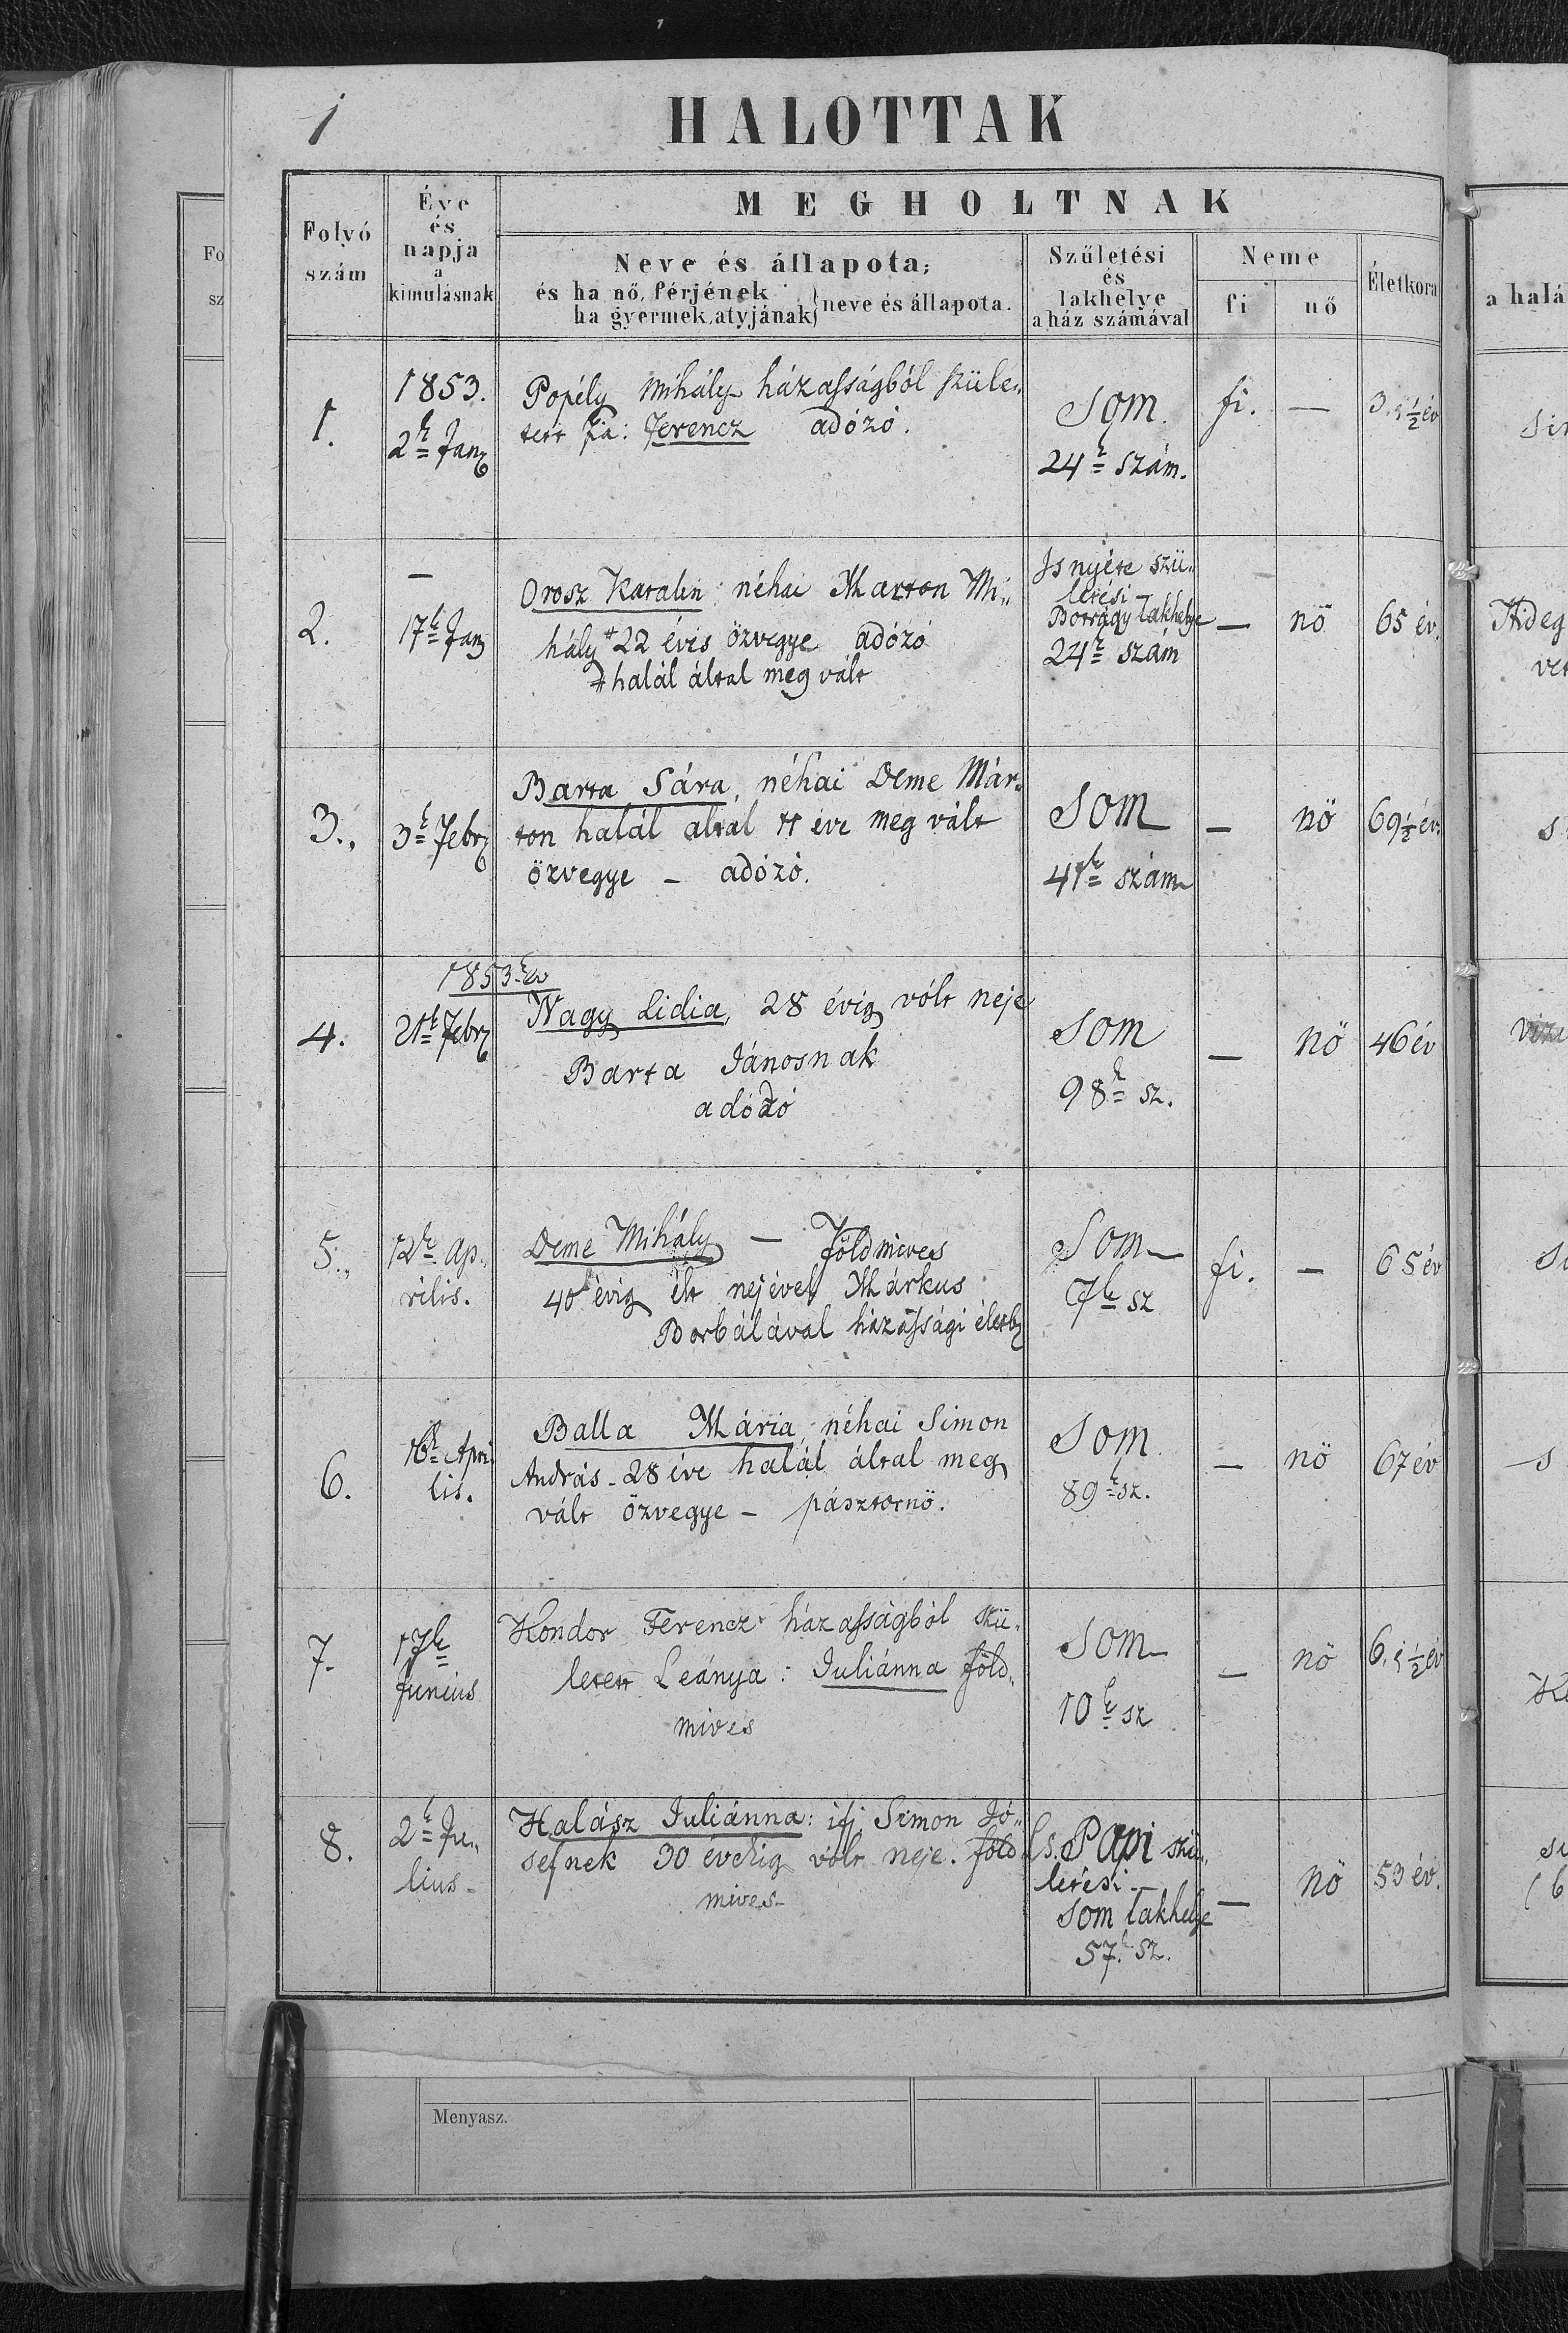 1
HALOTTAK
Folyó szám
Éve és napja a kimulásnak
MEGHOLTNAK
Neve és állapota;
és ha nő, férjének
ha gyermek, atyjának } neve és állapota.
Születési és lakhelye a ház számával
Neme
fi
nő
Életkora
a halá
1.
1853.
2k Jan
Popély Mihály házasságból szüle„
tett fia: Ferencz adózó.
Som.
24k szám.
fi.
—
3.,½ év
2.
—
17k Jan
Orosz Katalin: néhai Marton Mi„
hály + 22 évis özvegye adózó
+ halál által meg vált
Isnyéte szü„
letési —
Botrágy lakhelye
24k szám
—
nö
65 év.
Hideg
3.,
3k Febr
Barta Sára, néhai Deme Már„
ton halál által 11 éve meg vált
özvegye – adózó.
Som
41k szám
—
nö
69½ év.
4.
1853k Év
21k Febr
Nagy Lidia, 28 évig vólt neje
Barta Jánosnak
adózó
Som
98k sz.
—
nö
46 év
5.,
12k Ap„
rilis.
Deme Mihály — Földmives
40 évig élt nejével Márkus
Borbálával házassági életb
Som
7k sz
fi.
—
65 év
6.
16k Apri
lis.
Balla Mária, néhai Simon
András – 28 éve halál által meg
vált özvegye – pásztornö.
Som
89k sz.
—
nö
67 év
7.
17k
Junius
Kondor Ferencz házasságból szü„
letett Leánya: Juliánna föld„
mives
Som
10k sz
—
nö
6.,½ év
8.
2k Ju„
lius
Halász Juliánna: ifj. Simon Jó„
sefnek 30 évekig vólt neje. föld
mives
Cs. Papi szü„
letési —
Som lakhelye
57k sz.
—
nö
53 év.
Menyasz.